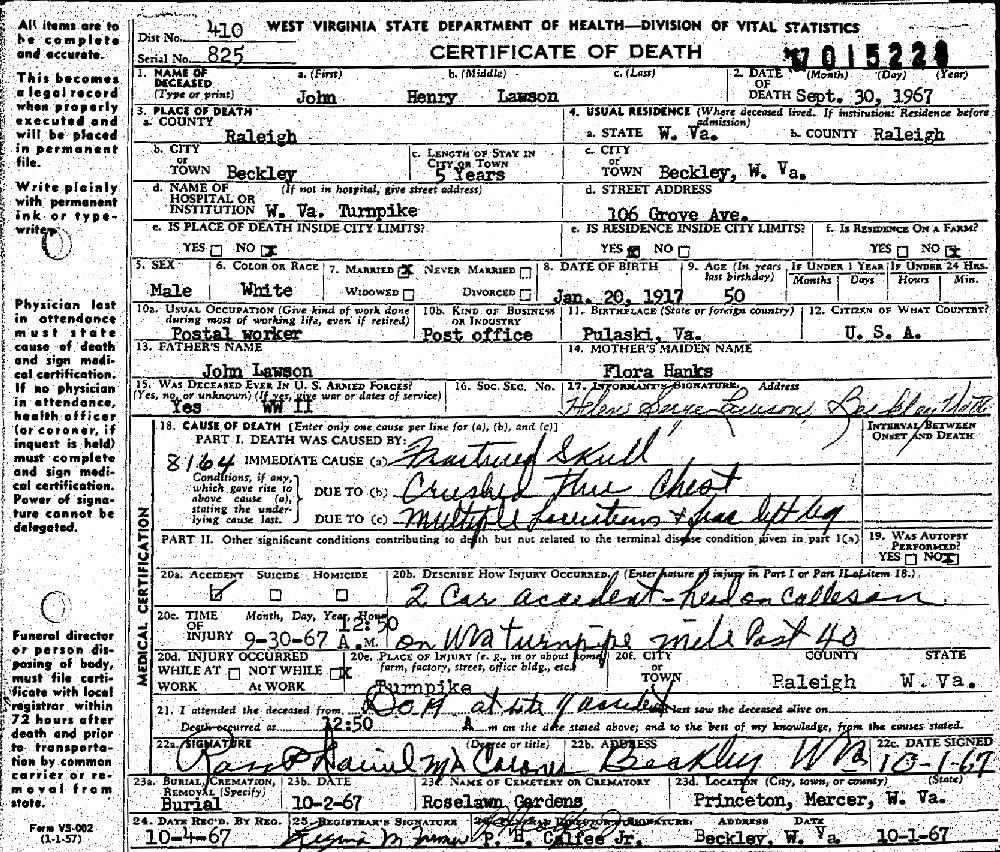 All items are to
be complete
and accurate.
This becomes
a legal record
when properly
executed and
will be placed
in permanent
file.
Write plainly
with permanent
ink or type-
writer.
Physician last
in attendance
must state
cause of death
and sign medi-
cal certification.
If no physician
in attendance,
health officer
(or coroner, if
inquest is held)
must complete
and sign medi-
cal certification.
Power of signa-
ture cannot be
delegated.
Funeral director
or person dis-
posing of body,
must file certi-
ficate with local
registrar within
72 hours after
death and prior
to transporta-
tion by common
carrier or re-
moval from
state.
Form VS-002
(1-1-57)
Dist No. 410 WEST VIRGINIA STATE DEPARTMENT OF HEALTH—DIVISION OF VITAL STATISTICS
Serial No. 825 CERTIFICATE OF DEATH 67 015220
1. NAME OF DECEASED (Type or print) a. (First) b. (Middle) c. (Last) 2. DATE OF DEATH (Month) (Day) (Year)
John Henry Lawson Sept. 30, 1967
3. PLACE OF DEATH 4. USUAL RESIDENCE (Where deceased lived. If institution: Residence before admission)
a. COUNTY Raleigh a. STATE W. Va. b. COUNTY Raleigh
b. CITY or TOWN Beckley c. LENGTH OF STAY IN CITY OR TOWN 5 Years c. CITY or TOWN Beckley, W. Va.
d. NAME OF HOSPITAL OR INSTITUTION (If not in hospital, give street address) W. Va. Turnpike d. STREET ADDRESS 106 Grove Ave.
e. IS PLACE OF DEATH INSIDE CITY LIMITS? e. IS RESIDENCE INSIDE CITY LIMITS? f. IS RESIDENCE ON A FARM?
YES NO X YES X NO YES NO X
5. SEX 6. COLOR OR RACE 7. MARRIED X NEVER MARRIED 8. DATE OF BIRTH 9. AGE (In years last birthday) IF UNDER 1 YEAR IF UNDER 24 HRS.
WIDOWED DIVORCED Months Days Hours Min.
Male White Jan. 20, 1917 50
10a. USUAL OCCUPATION (Give kind of work done during most of working life, even if retired) 10b. KIND OF BUSINESS OR INDUSTRY 11. BIRTHPLACE (State or foreign country) 12. CITIZEN OF WHAT COUNTRY?
Postal worker Post office Pulaski, Va. U. S. A.
13. FATHER'S NAME 14. MOTHER'S MAIDEN NAME
John Lawson Flora Hanks
15. WAS DECEASED EVER IN U. S. ARMED FORCES? 16. SOC. SEC. NO. 17. INFORMANT'S SIGNATURE Address
(Yes, no, or unknown) (If yes, give war or dates of service)
Yes WW II Helen Lawson, Beckley
18. CAUSE OF DEATH [Enter only one cause per line for (a), (b), and (c)] INTERVAL BETWEEN ONSET AND DEATH
PART I. DEATH WAS CAUSED BY:
8164 IMMEDIATE CAUSE (a) Fractured Skull
Conditions, if any, which gave rise to above cause (a), stating the underlying cause last.
DUE TO (b) Crushed Chest
DUE TO (c) Multiple left leg
PART II. Other significant conditions contributing to death but not related to the terminal disease condition given in part I(a) 19. WAS AUTOPSY PERFORMED?
YES NO X
MEDICAL CERTIFICATION
20a. ACCIDENT SUICIDE HOMICIDE 20b. DESCRIBE HOW INJURY OCCURRED. (Enter nature of injury in Part I or Part II of item 18.)
2 Car accident - head on
20c. TIME OF INJURY Month, Day, Year, Hour 9-30-67 12:50 A.M. on WVa turnpipe mile Post 40
20d. INJURY OCCURRED 20e. PLACE OF INJURY (e. g., in or about home, farm, factory, street, office bldg., etc.) 20f. CITY or TOWN COUNTY STATE
WHILE AT WORK NOT WHILE AT WORK X Turnpike Raleigh W. Va.
21. I attended the deceased from DOA at last saw the deceased alive on
Death occurred at 12:50 A. m on the date stated above; and to the best of my knowledge, from the causes stated.
22a. SIGNATURE (Degree or title) 22b. ADDRESS 22c. DATE SIGNED
Daniel MD Coroner Beckley WVa 10-1-67
23a. BURIAL, CREMATION, REMOVAL (Specify) 23b. DATE 23c. NAME OF CEMETERY OR CREMATORY 23d. LOCATION (City, town, or county) (State)
Burial 10-2-67 Roselawn Gardens Princeton, Mercer, W. Va.
24. DATE REC'D. BY REG. 25. REGISTRAR'S SIGNATURE ADDRESS DATE
10-4-67 P. H. Calfee Jr. Beckley, W. Va. 10-1-67